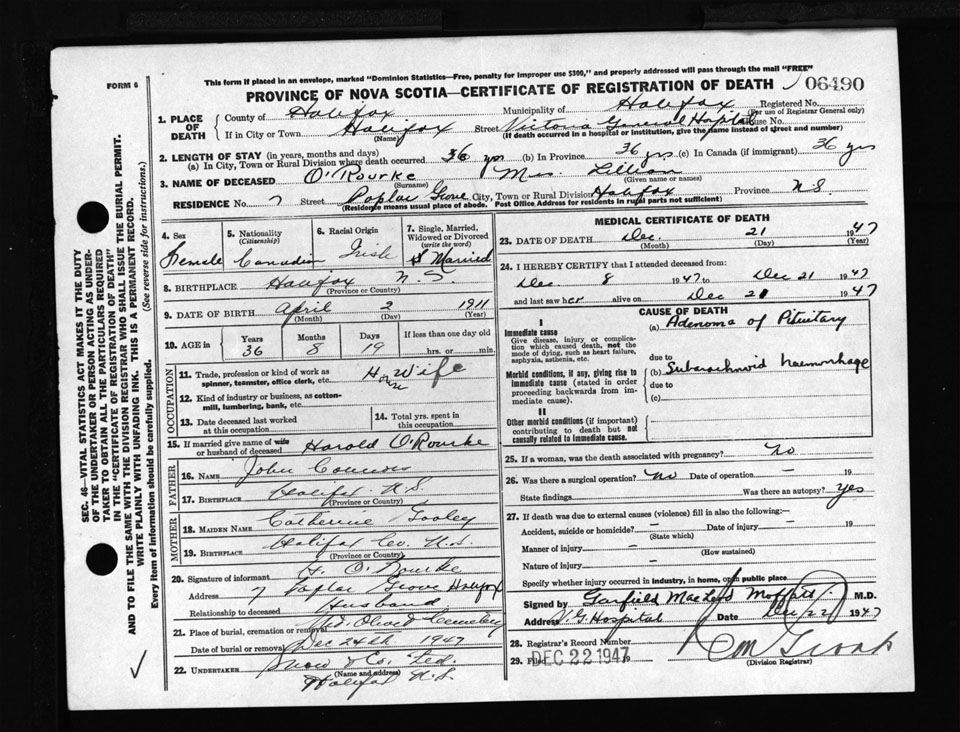 FORM 6
This form if placed in an envelope, marked "Dominion Statistics—Free, penalty for improper use $300," and properly addressed will pass through the mail "FREE"
PROVINCE OF NOVA SCOTIA—CERTIFICATE OF REGISTRATION OF DEATH 06490
1. PLACE OF DEATH
County of Halifax Municipality of Halifax Registered No.
(For use of Registrar General only)
If in City or Town Halifax Street Victoria General Hospital House No.
(Name) (If death occurred in a hospital or institution, give the name instead of street and number)
2. LENGTH OF STAY (in years, months and days)
(a) In City, Town or Rural Division where death occurred 36 yrs (b) In Province 36 yrs (c) In Canada (if immigrant) 36 yrs
3. NAME OF DECEASED O'Rourke Mrs. Lillian
(Surname) (Given name or names)
RESIDENCE No. 7 Street Poplar Grove City, Town or Rural Division Halifax Province N.S.
(Residence means usual place of abode. Post Office Address for residents in rural parts not sufficient)
4. Sex Female
5. Nationality (Citizenship) Canadian
6. Racial Origin Irish
7. Single, Married, Widowed or Divorced (write the word) Married
8. BIRTHPLACE Halifax N.S.
(Province or Country)
9. DATE OF BIRTH April 2 1911
(Month) (Day) (Year)
10. AGE in Years 36 Months 8 Days 19 If less than one day old hrs. or min.
OCCUPATION
11. Trade, profession or kind of work as spinner, teamster, office clerk, etc. House Wife
12. Kind of industry or business, as cotton-mill, lumbering, bank, etc.
13. Date deceased last worked at this occupation
14. Total yrs. spent in this occupation
15. If married give name of wife or husband of deceased Harold O'Rourke
FATHER
16. NAME John Connors
17. BIRTHPLACE Halifax N.S.
(Province or Country)
MOTHER
18. MAIDEN NAME Catherine Gooley
19. BIRTHPLACE Halifax Co. N.S.
(Province or Country)
20. Signature of informant H. O'Rourke
Address 7 Poplar Grove Halifax
Relationship to deceased Husband
21. Place of burial, cremation or removal Mt. Olivet Cemetery
Date of burial or removal Dec 24th 1947
22. UNDERTAKER Snow & Co. Ltd.
(Name and address)
Halifax N.S.
MEDICAL CERTIFICATE OF DEATH
23. DATE OF DEATH Dec. 21 1947
(Month) (Day) (Year)
24. I HEREBY CERTIFY that I attended deceased from:
Dec. 8 1947 to Dec 21 1947
and last saw her alive on Dec 21 1947
CAUSE OF DEATH
I
Immediate cause
Give disease, injury or complication which caused death, not the mode of dying, such as heart failure, asphyxia, asthenia, etc.
(a) Adenoma of Pituitary
due to
Morbid conditions, if any, giving rise to immediate cause (stated in order proceeding backwards from immediate cause).
(b) Subarachnoid haemorrhage
due to
(c)
II
Other morbid conditions (if important) contributing to death but not causally related to Immediate cause.
25. If a woman, was the death associated with pregnancy? No
26. Was there a surgical operation? No Date of operation — 19
State findings Was there an autopsy? Yes
27. If death was due to external causes (violence) fill in also the following:—
Accident, suicide or homicide? — Date of injury — 19
(State which)
Manner of injury —
(How sustained)
Nature of injury —
Specify whether injury occurred in Industry, in home, or in public place
Signed by Garfield MacLeod Moffatt M.D.
Address V.G. Hospital Date Dec 22 1947
28. Registrar's Record Number
29. Filed DEC 22 1947 19
(Division Registrar)
SEC. 46—VITAL STATISTICS ACT MAKES IT THE DUTY
OF THE UNDERTAKER OR PERSON ACTING AS UNDERTAKER
TO OBTAIN ALL THE PARTICULARS REQUIRED
IN THE "CERTIFICATE OF REGISTRATION OF DEATH"
AND TO FILE THE SAME WITH THE DIVISION REGISTRAR WHO SHALL ISSUE THE BURIAL PERMIT.
WRITE PLAINLY WITH UNFADING INK. THIS IS A PERMANENT RECORD.
Every item of information should be carefully supplied. (See reverse side for instructions.)